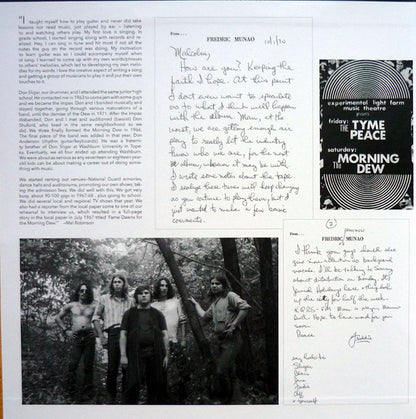 "I taught myself how to play guitar and never did take
lessons nor read music, just played by ear – listening
to and watching others play. My first love is singing. In
grade school, I started singing along with records and re-
alized: Hey, I can sing in tune and hit most if not all the
notes the guy on the record was doing. My motivation
to learn guitar was so I could accompany myself when
I sang. I learned to come up with my own words/phrases
to others' melodies, which led to developing my own melo-
dies for my words. I love the creative aspect of writing a song
and getting a group of musicians to play it and put their own
touches to it.
Don Sligar, our drummer, and I attended the same junior high
school. He contacted me in 1963 to come jam with some guys
and we became the Impax. Don and I bonded musically and
stayed together, going through various maturations of a
band, until the demise of the Dew in 1971. After the Impax
disbanded, Don and I met and auditioned (bassist) Don
Shuford, who lived in the same neighborhood as we
did. We three finally formed the Morning Dew in 1966.
The final piece of the band was added in that year, Don
Anderson (rhythm guitar/keyboards). He was a fraterni-
ty brother of Don Sligar at Washburn University in Tope-
ka. Eventually, we all four ended up attending Washburn.
We were about as serious as any seventeen or eighteen year-
old kids can be about making a career out of doing some-
thing with music.
We started renting out venues–National Guard armories,
dance halls and auditoriums, promoting our own shows, tak-
ing the admission fees. We did well with this. We got very
busy, about 90-100 gigs in 1967-68 , plus going to school.
We did several local and regional TV shows that year. We
also had a reporter from the local paper come to one of our
rehearsal to interview us, which resulted in a full-page
story in the local paper in July 1967 titled "Fame Dawns for
the Morning Dew." –Mal Robinson
From...
FREDRIC MUNAO
Malcolm,
How are you? Keeping the
faith I hope. At this point
I don't even want to speculate
as to what I think will happen
with the album. Mom, at the
worst, we are getting enough air
play to really let the industry
know who we are, for the next
album, whenever it may be with
I wrote some notes about the tape.
I realize these tunes will keep changing
as you continue to play them, but I
just wanted to make a few basic
comments.
experimental light form
music theatre
friday:
THE TYME
PEACE
saturday:
THE MORNING
DEW
(2)
From...
FREDRIC MUNAO
I think you guys should also
give more attention to background
vocals. I'll be talking to Sonny
about distribution on Monday. The
Jewish Holidays have things
up the city for half the week.
Hope to have word for you
soon.
Peace